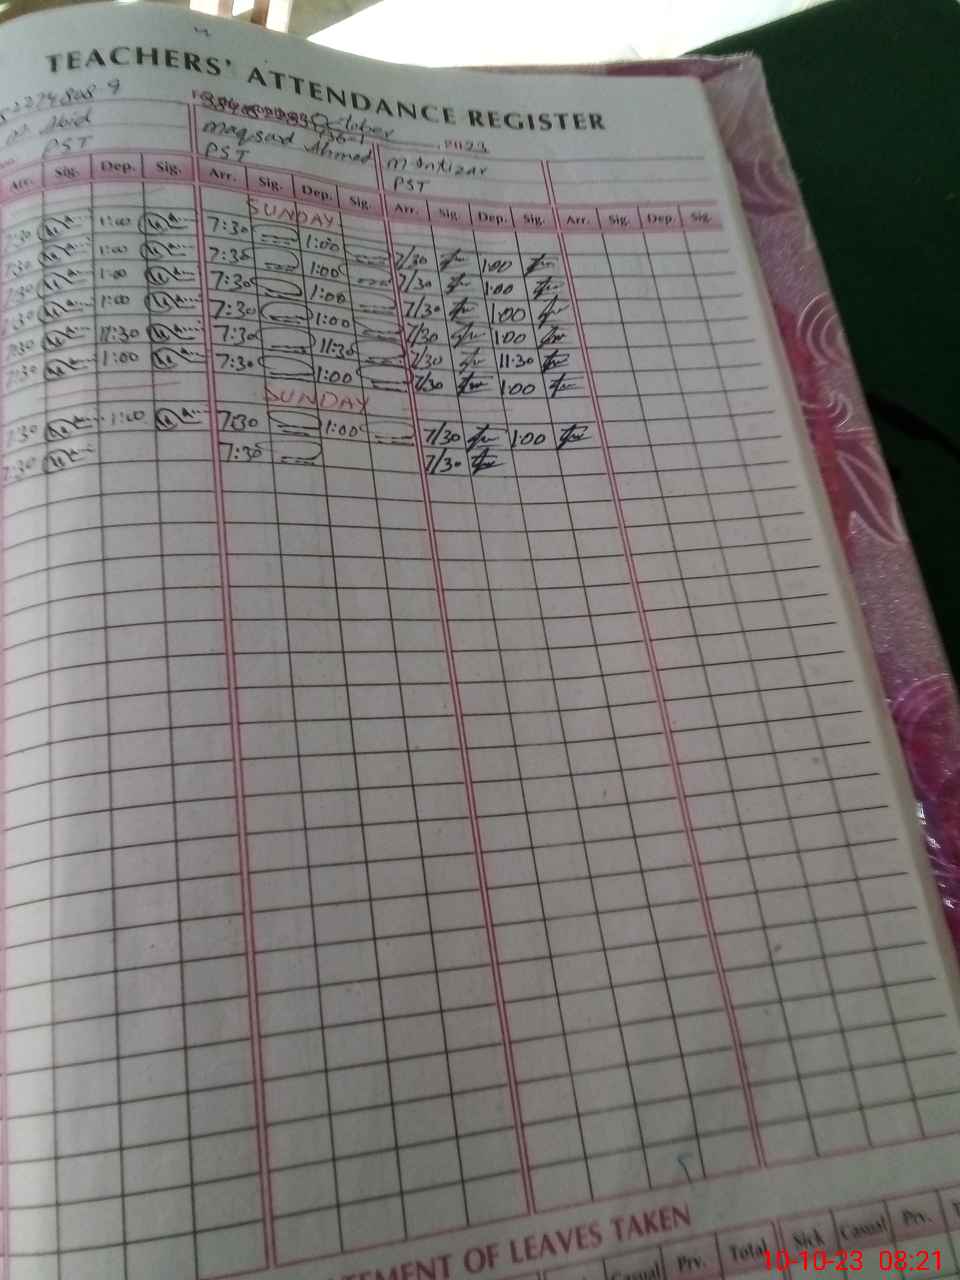 TEACHERS' ATTENDANCE REGISTER
October 2023
Abid Maqsood Ahmed M-Intizar
PST PST PST
Arr. Sig. Dep. Sig. Arr. Sig. Dep. Sig. Arr. Sig. Dep. Sig. Arr. Sig. Dep. Sig.
SUNDAY
7:30 1:00 7:30 1:00 7/30 1:00
7:30 1:00 7:30 1:00 7/30 1:00
7:30 1:00 7:30 1:00 7/30 1:00
7:30 1:00 7:30 1:00 7/30 1:00
7:30 11:30 7:30 11:30 7/30 11:30
7:30 1:00 7:30 1:00 7/30 1:00
SUNDAY
7:30 1:00 7:30 1:00 7/30 1:00
7:30 7:30 7/30
TEMENT OF LEAVES TAKEN
Casual Prv. Total Sick Casual Prv.
10-10-23 08:21